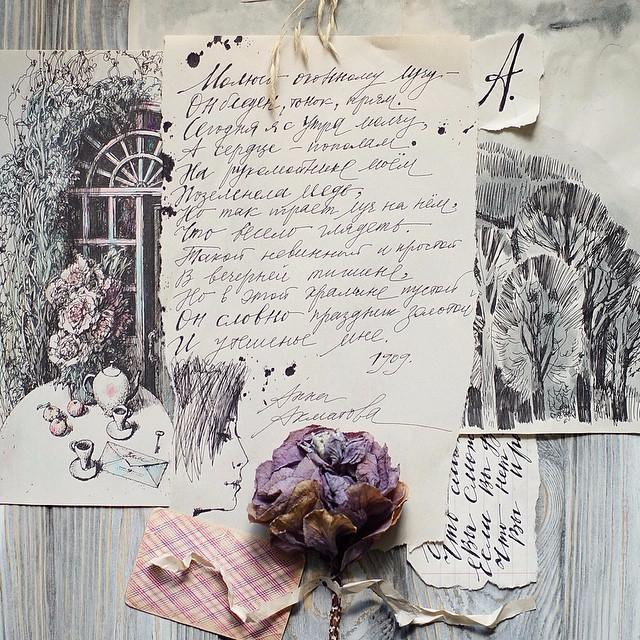 Молюсь оконному лучу –
Он бледен, тонок, прям.
Сегодня я с утра молчу,
А сердце – пополам.
На рукомойнике моём
Позеленела медь,
Но так играет луч на нём,
Что весело глядеть.
Такой невинный и простой
В вечерней тишине,
Но в этой храмине пустой
Он словно праздник золотой
И утешенье мне.
1909.
Анна
Ахматова
А.
Что
Если вы
Что
Вы